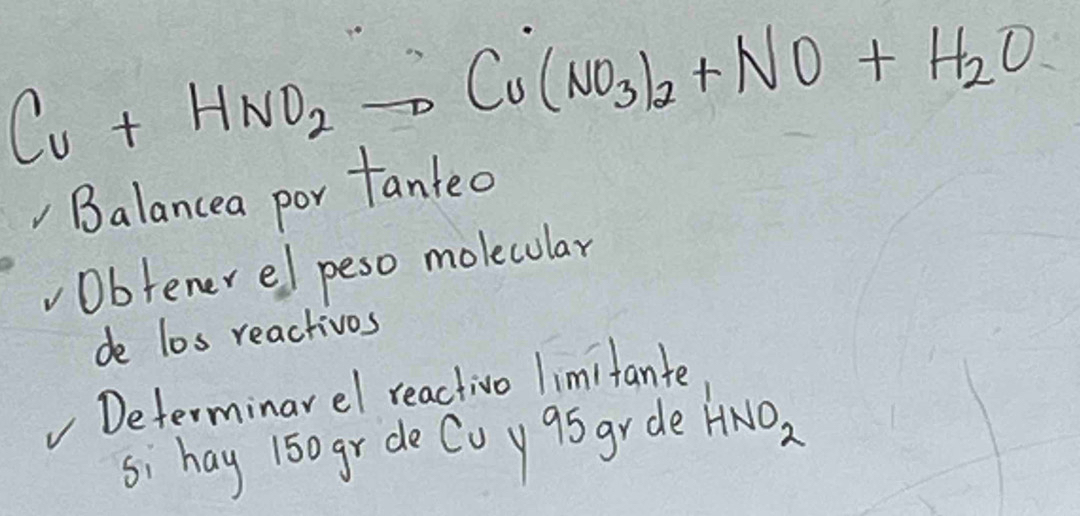 Cu + HNO₂ → Cu(NO₃)₂ + NO + H₂O
✓ Balancea por tanteo
✓ Obtener el peso molecular
de los reactivos
✓ Determinar el reactivo limitante,
si hay 150 gr de Cu y 95 gr de HNO₂